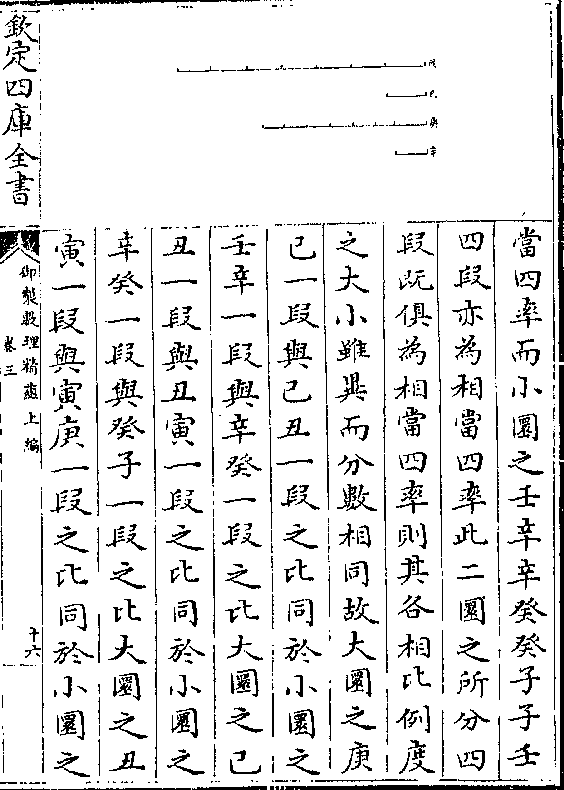 戊
己
庚
辛
當四率而小圜之壬辛辛癸癸子子壬
四段亦為相當四率此二圜之所分四
段既俱為相當四率則其各相比例度
之大小雖異而分數相同故大圜之庚
己一段與己丑一段之比同於小圜之
壬辛一段與辛癸一段之比大圜之己
丑一段與丑寅一段之比同於小圜之
辛癸一段與癸子一段之比大圜之丑
寅一段與寅庚一段之比同於小圜之
欽定四庫全書
御製數理精蘊上編
卷三
十六